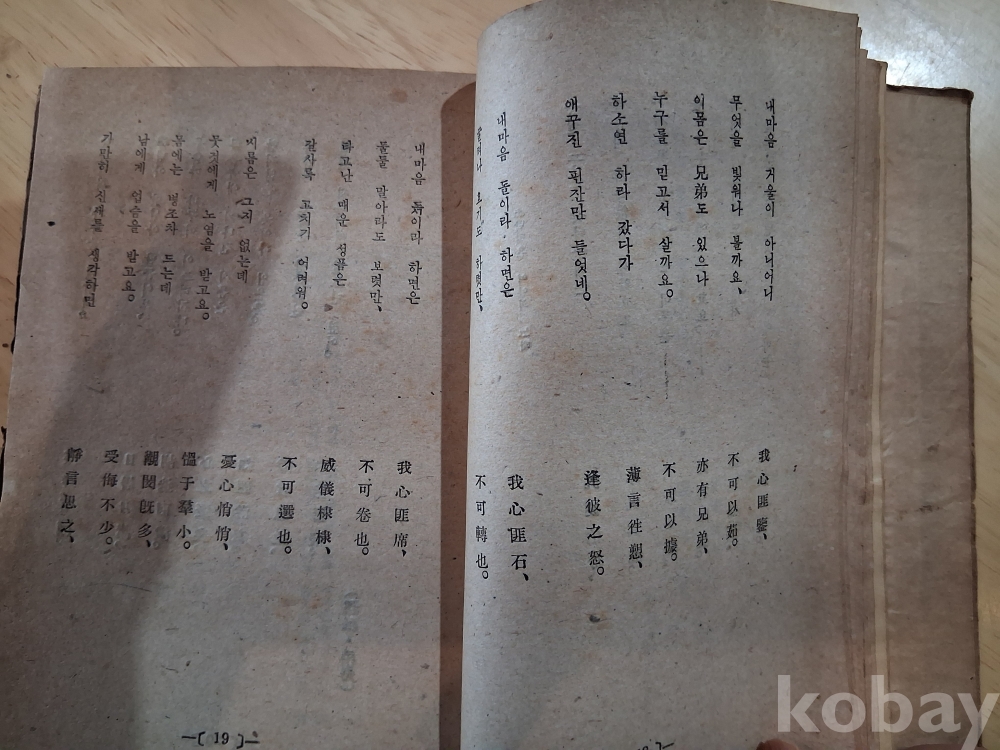 내마음 거울이 아니어니
무엇을 빛워나 볼까요、
이몸은 兄弟도 있으나
누구를 믿고서 살까요。
하소연 하라 갔다가
애꾸진 핀잔만 들엇네。
내마음 돌이라 하면은
하렷만、
我心匪鑒、
不可以茹。
亦有兄弟、
不可以據。
薄言徃愬、
逢彼之怒。
我心匪石、
不可轉也。
내마음 돍이라 하면은
둘둘 말아라도 보렷만、
타고난 매운 성품은
잘사록 고치기 어려워。
시름은 그지 없는데
뭇것에게 노염을 받고요。
몸에는 병조차 드는데
남에게 업숭을 받고요。
가만히 신세를 생각하면
我心匪席、
不可卷也。
威儀棣棣、
不可選也。
憂心悄悄、
慍于羣小。
覯閔旣多、
受侮不少。
靜言思之、
—〔 19 〕—
kobay